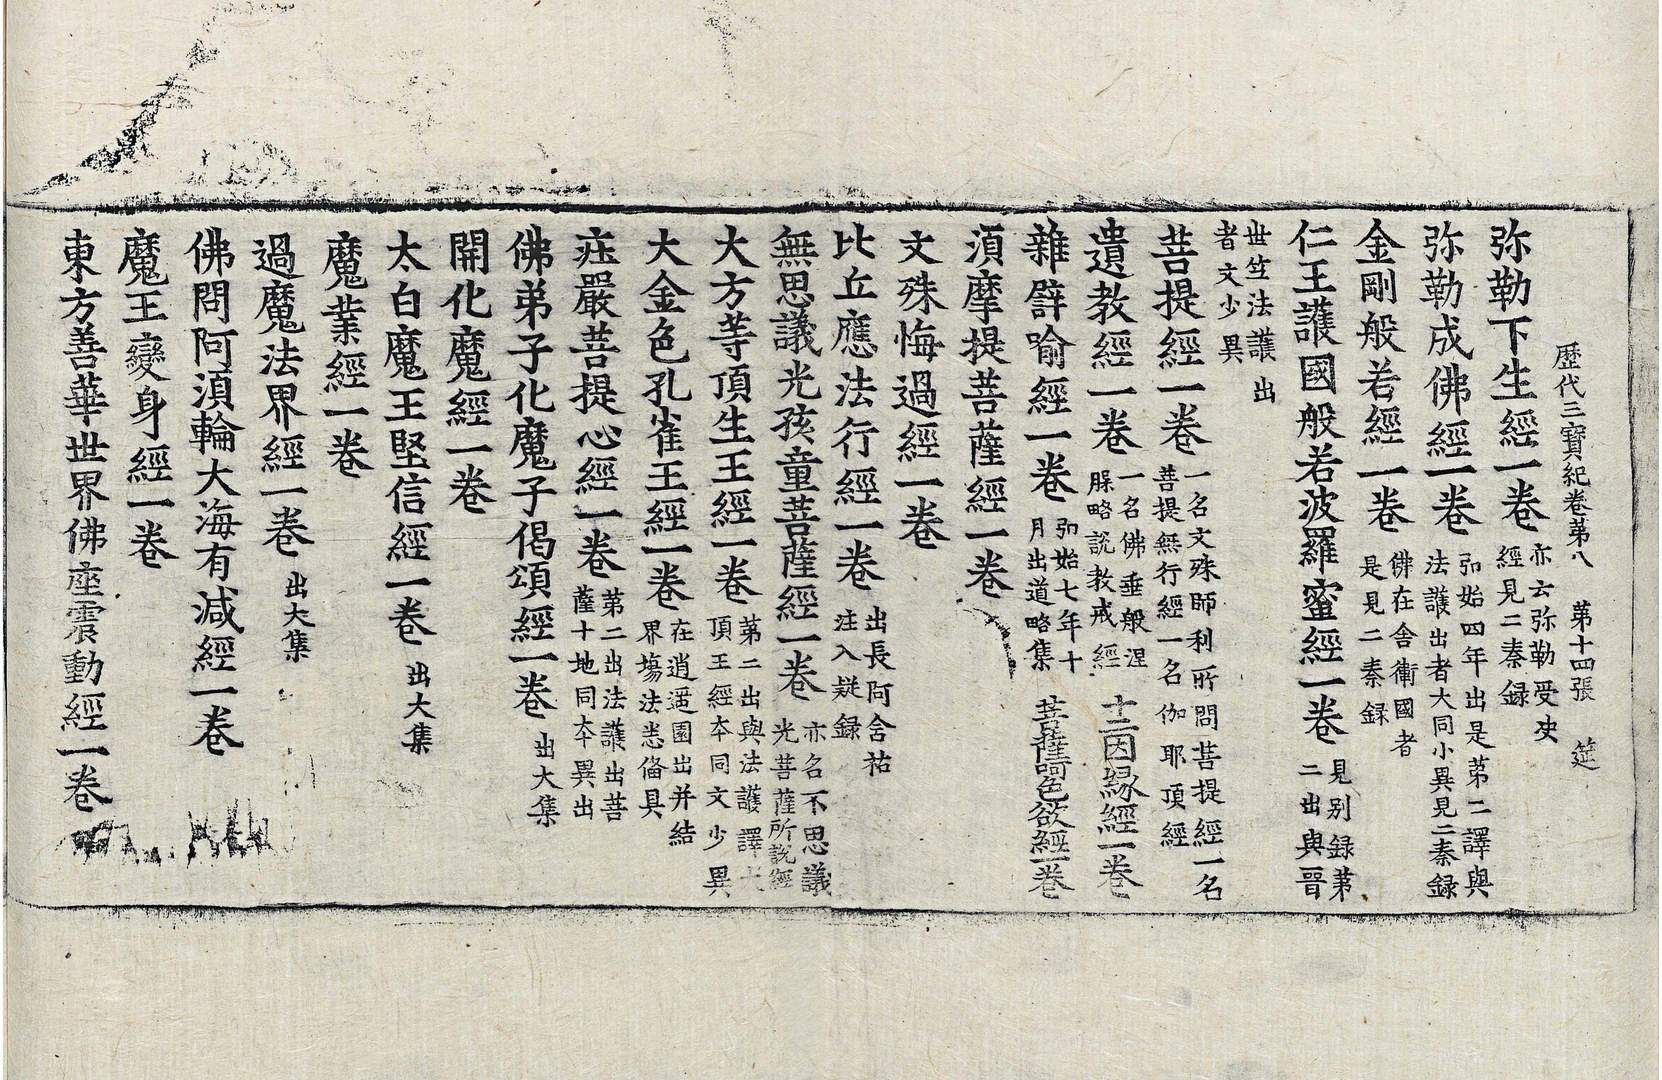 歷代三寳紀卷苐八 苐十四張 筵
弥勒下生經一卷亦云弥勒受决經見二秦録
弥勒成佛經一卷弘始四年出是苐二譯與法護出者大同小異見二秦録
金剛般若經一卷佛在舍衛國者是見二秦録
仁王護國般若波羅蜜經一卷見別録苐二出與晉
世竺法護出者文少異
菩提經一卷一名文殊師利所問菩提經一名菩提無行經一名伽耶頂經
遺教經一卷一名佛垂般涅脵略說教戒經 十二因緣經一卷
雜譬喻經一卷弘始七年十月出道略集 菩薩呵色欲經一卷
湏摩提菩薩經一卷
文殊悔過經一卷
比丘應法行經一卷出長阿舍祐注入疑録
無思議光孩童菩薩經一卷亦名不思議光菩薩所說經
大方等頂生王經一卷第二出與法護譯大頂王經夲同文少異
大金色孔雀王經一卷在逍遥園出并結界塲法悉俻具
荘嚴菩提心經一卷第二出法護出菩薩十地同夲異出
佛弟子化魔子偈頌經一卷出大集
開化魔經一卷
太白魔王堅信經一卷出大集
魔業經一卷
過魔法界經一卷出大集
佛問阿湏輪大海有減經一卷
魔王變身經一卷
東方善華世界佛座震動經一卷